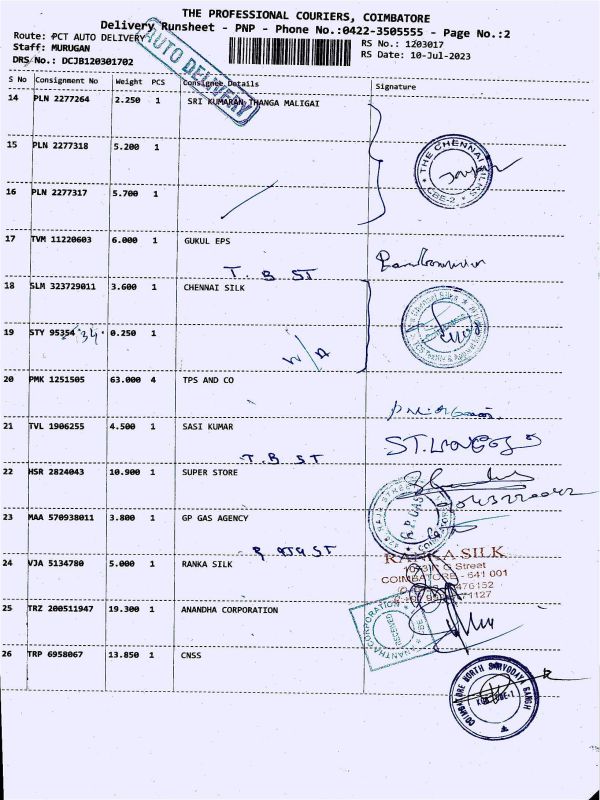 THE PROFESSIONAL COURIERS, COIMBATORE
Delivery Runsheet - PNP - Phone No.:0422-3505555 - Page No.:2
Route: PCT AUTO DELIVERY
RS No.: 1203017
Staff: MURUGAN
RS Date: 10-Jul-2023
DRS No.: DCJB120301702
AUTO DELIVERY
S No Consignment No Weight PCS Consignee Details Signature
14 PLN 2277264 2.250 1 SRI KUMARAN THANGA MALIGAI
15 PLN 2277318 5.200 1
THE CHENNAI SILKS
CBE-2
16 PLN 2277317 5.700 1
17 TVM 11220603 6.000 1 GUKUL EPS
T. B ST
18 SLM 323729011 3.600 1 CHENNAI SILK
19 STY 95354 34 0.250 1
20 PMK 1251505 63.000 4 TPS AND CO
21 TVL 1906255 4.500 1 SASI KUMAR
T.B ST
22 HSR 2824043 10.900 1 SUPER STORE
23 MAA 570938011 3.800 1 GP GAS AGENCY
G.P. GAS
24 VJA 5134780 5.000 1 RANKA SILK
RANKA SILK
Street
COIMBATORE - 641 001
25 TRZ 200511947 19.300 1 ANANDHA CORPORATION
RECEIVED
26 TRP 6958067 13.850 1 CNSS
COIMBATORE NORTH SARVODAYA SANGH